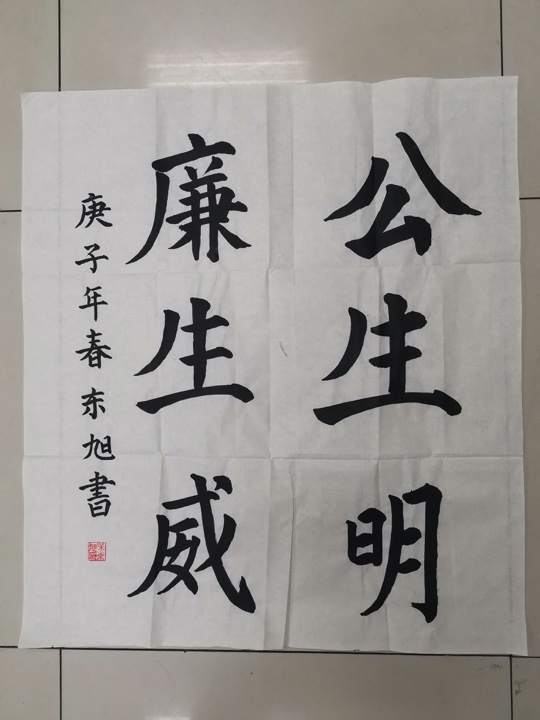 公生明
廉生威
庚子年春东旭書